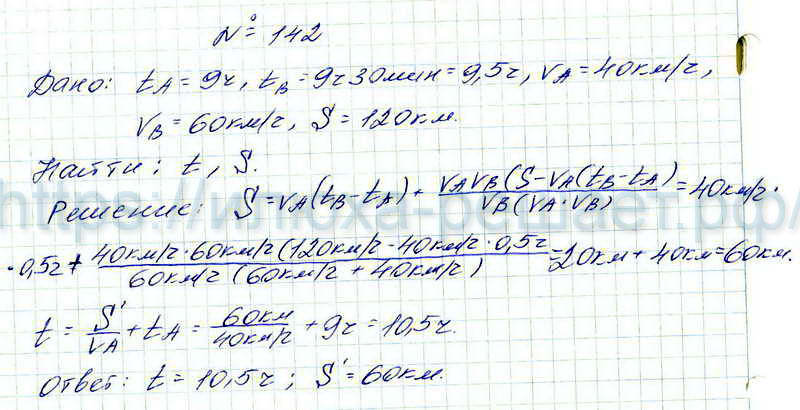 № 142
Дано: tA = 9ч, tB = 9ч30мин = 9,5ч, vA = 40км/ч,
vB = 60км/ч, S' = 120км.
Найти: t, S.
Решение: S' = vA(tB - tA) + vAvB(S - vA(tB - tA) / vB(vA · vB) = 40км/ч ·
· 0,5ч + 40км/ч · 60км/ч (120км/ч - 40км/ч · 0,5ч / 60км/ч (60км/ч + 40км/ч) = 20км + 40км = 60км.
t = S'/vA + tA = 60км/40км/ч + 9ч = 10,5ч.
Ответ: t = 10,5ч; S' = 60км.